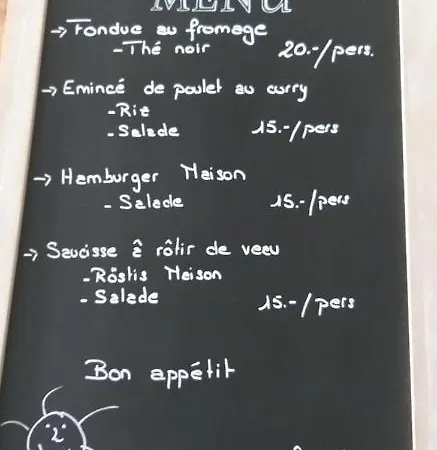 MENU
→ Fondue au fromage
- Thé noir 20.-/pers.
→ Emincé de poulet au curry
- Riz
- Salade 15.-/pers
→ Hamburger Maison
- Salade 15.-/pers
→ Saucisse à rôtir de veau
- Röstis Maison
- Salade 15.-/pers
Bon appétit